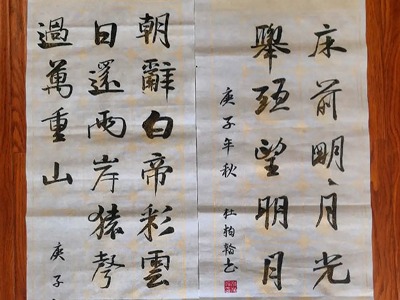 床前明月光
舉頭望明月
庚子年秋 杜 翰书
朝辭白帝彩雲
日還兩岸猿聲
過萬重山
庚子